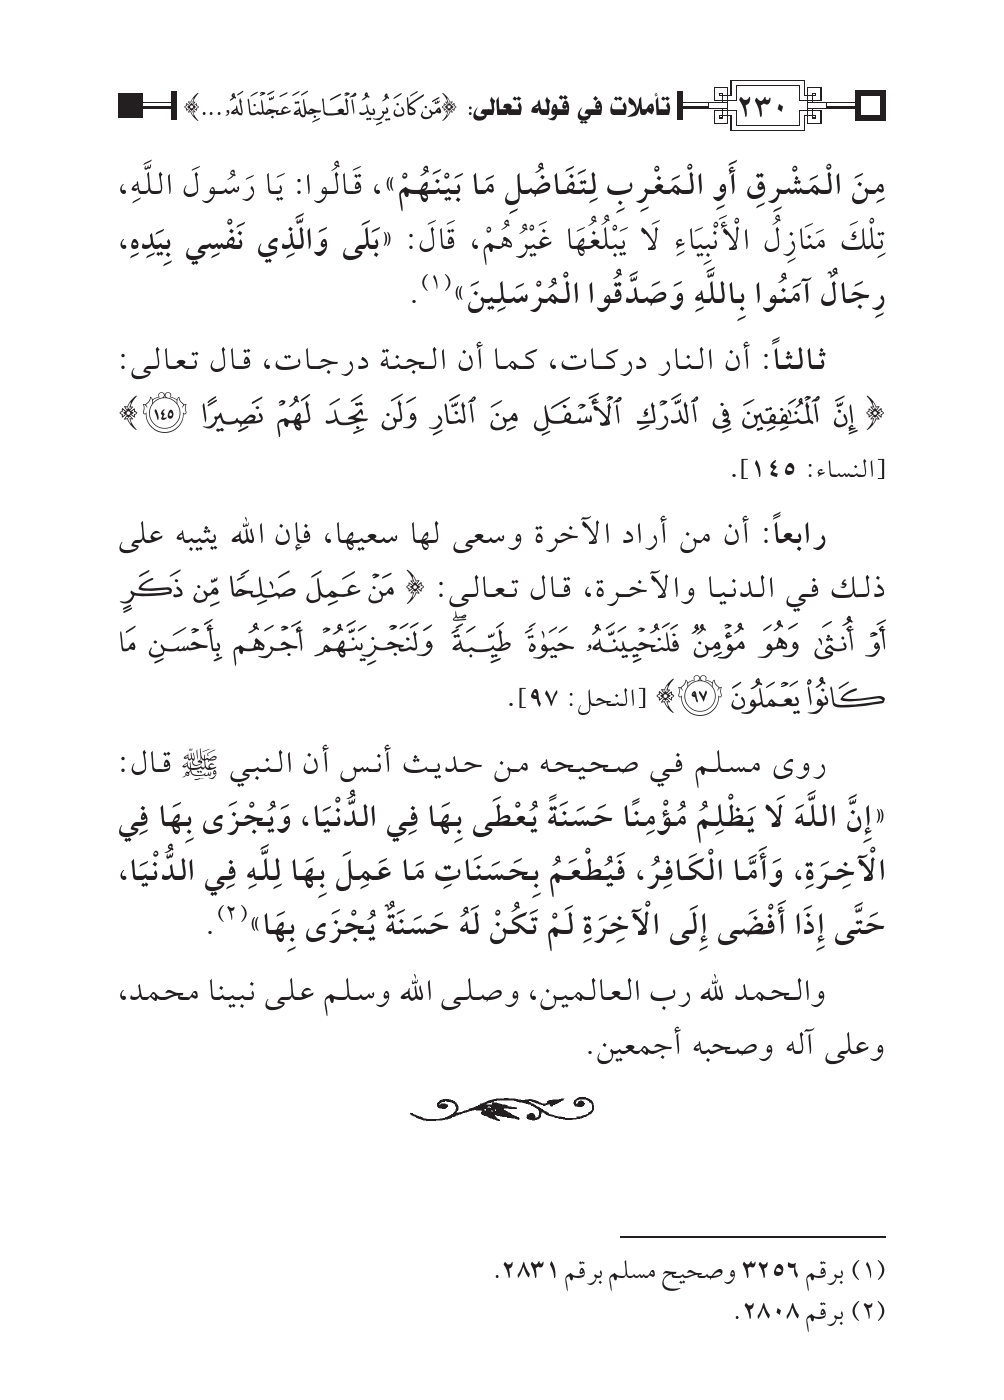 ٢٣٠ تأملات في قوله تعالى: ﴿مَّن كَانَ يُرِيدُ ٱلْعَاجِلَةَ عَجَّلْنَا لَهُۥ ...﴾
مِنَ الْمَشْرِقِ أَوِ الْمَغْرِبِ لِتَفَاضُلِ مَا بَيْنَهُمْ»، قَالُوا: يَا رَسُولَ اللَّهِ،
تِلْكَ مَنَازِلُ الْأَنْبِيَاءِ لَا يَبْلُغُهَا غَيْرُهُمْ، قَالَ: «بَلَى وَالَّذِي نَفْسِي بِيَدِهِ،
رِجَالٌ آمَنُوا بِاللَّهِ وَصَدَّقُوا الْمُرْسَلِينَ»(١).
ثالثاً: أن النار دركات، كما أن الجنة درجات، قال تعالى:
﴿ إِنَّ ٱلْمُنَٰفِقِينَ فِى ٱلدَّرْكِ ٱلْأَسْفَلِ مِنَ ٱلنَّارِ وَلَن تَجِدَ لَهُمْ نَصِيرًا ١٤٥ ﴾
[النساء: ١٤٥].
رابعاً: أن من أراد الآخرة وسعى لها سعيها، فإن الله يثيبه على
ذلك في الدنيا والآخرة، قال تعالى: ﴿ مَنْ عَمِلَ صَٰلِحًا مِّن ذَكَرٍ
أَوْ أُنثَىٰ وَهُوَ مُؤْمِنٌ فَلَنُحْيِيَنَّهُۥ حَيَوٰةً طَيِّبَةً ۖ وَلَنَجْزِيَنَّهُمْ أَجْرَهُم بِأَحْسَنِ مَا
كَانُوا۟ يَعْمَلُونَ ٩٧ ﴾ [النحل: ٩٧].
روى مسلم في صحيحه من حديث أنس أن النبي ﷺ قال:
«إِنَّ اللَّهَ لَا يَظْلِمُ مُؤْمِنًا حَسَنَةً يُعْطَى بِهَا فِي الدُّنْيَا، وَيُجْزَى بِهَا فِي
الْآخِرَةِ، وَأَمَّا الْكَافِرُ، فَيُطْعَمُ بِحَسَنَاتِ مَا عَمِلَ بِهَا لِلَّهِ فِي الدُّنْيَا،
حَتَّى إِذَا أَفْضَى إِلَى الْآخِرَةِ لَمْ تَكُنْ لَهُ حَسَنَةٌ يُجْزَى بِهَا»(٢).
والحمد لله رب العالمين، وصلى الله وسلم على نبينا محمد،
وعلى آله وصحبه أجمعين.
(١) برقم ٣٢٥٦ وصحيح مسلم برقم ٢٨٣١.
(٢) برقم ٢٨٠٨.